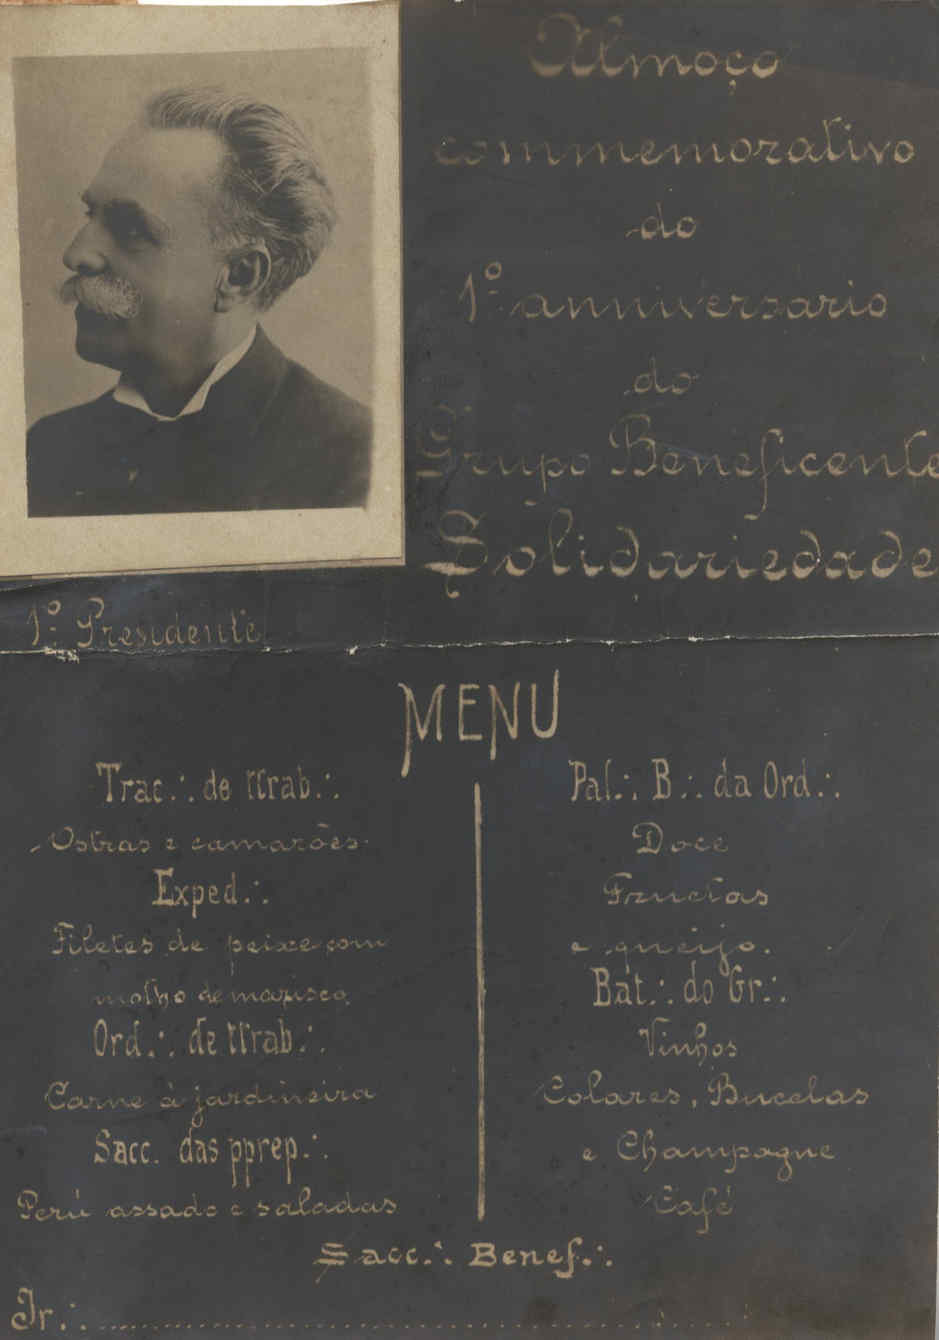 Almoço
commemorativo
do
1º anniversario
do
Grupo Beneficente
Solidariedade
1º Presidente
MENU
Trac.∴ de ttrab.∴
Ostras e camarões
Exped.∴
Filetes de peixe com
molho de marisco
Ord.∴ de ttrab.∴
Carne à jardineira
Sacc. das pprep.∴
Perú assado e saladas
Pal.∴ B.∴ da Ord.∴
Doce
Fructas
e queijo.
Bat.∴ do Gr.∴
Vinhos
Colares, Bucelas
e Champagne
Café
Sacc.∴ Benef.∴
Ir.∴